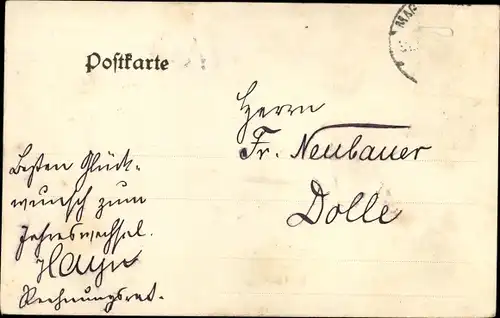 Postkarte
Herrn
Fr. Neubauer
Dolle
Besten Glück-
wunsch zum
Jahreswechsel.
Hayn
Rechnungsrat.